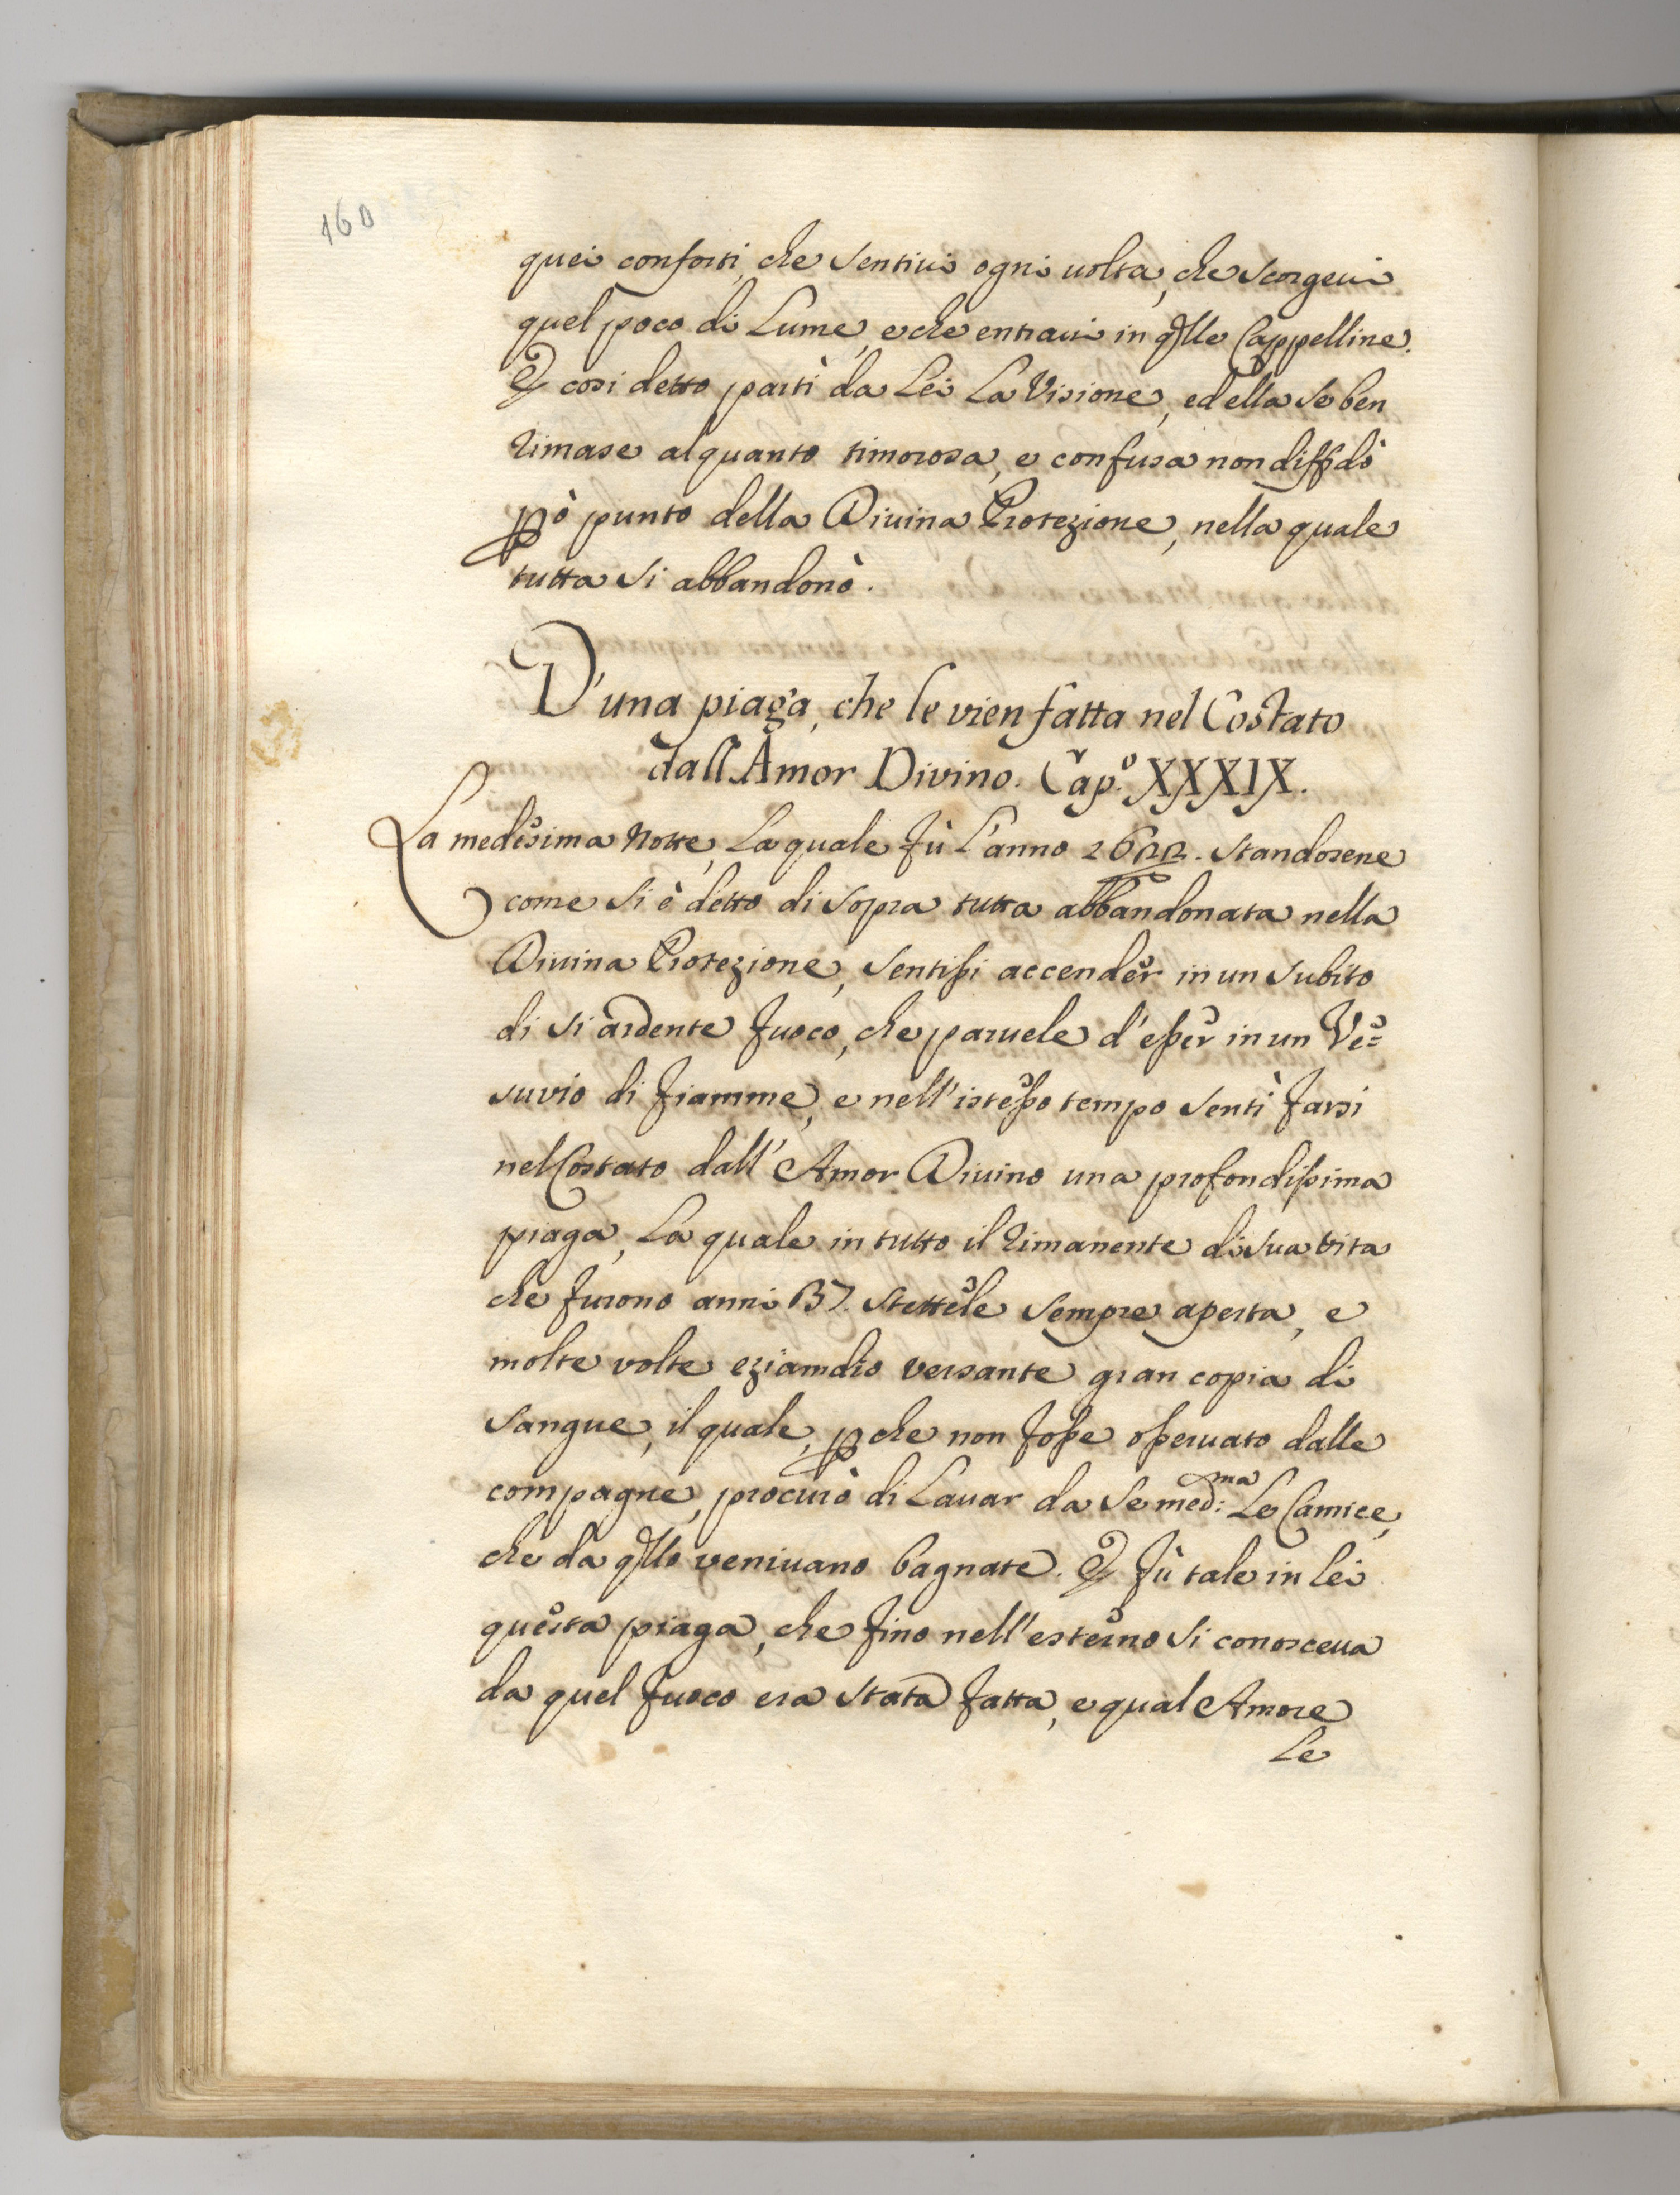 160
quei conforti, che sentivi ogni uolta, che scorgeui
quel poco di Lume, e che entraui in qlle Cappelline.
E cosi detto partì da Lei La Visione, ed ella se ben
rimase alquanto timorosa, e confusa non diffidò
pò punto della Diuina Protezione, nella quale
tutta si abbandonò.
D'una piaga, che le vien fatta nel Costato
dall'Amor Divino. Cap.º XXXIX.
La medesima Notte, La quale fù L'anno standosene
come si è detto di sopra tutta abbandonata nella
Diuina Protezione, sentissi accender in un subito
di si ardente fuoco, che paruele d'esser in un Ve=
suvio di fiamme, e nell'istesso tempo sentì farsi
nel Costato dall'Amor Diuino una profondissima
piaga, La quale in tutto il rimanente di sua vita
che furono anni stettele sempre aperta, e
molte volte eziamdio versante gran copia di
sangue, il quale, pche non fosse osseruato dalle
compagne, procurò di Lauar da se med:ma Le Camice,
che da qllo veniuano bagnate. E fù tale in lei
questa piaga, che fino nell'esterno si conosceua
da quel fuoco era stata fatta, e qual Amore
Le